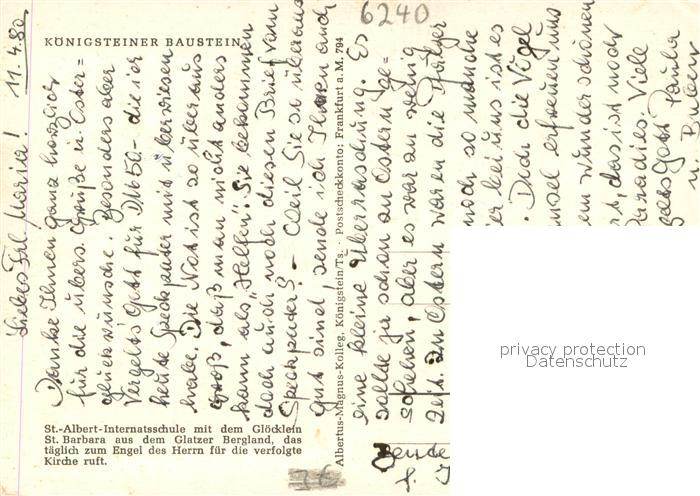 6240
KÖNIGSTEINER BAUSTEIN
St.-Albert-Internatsschule mit dem Glöcklein
St. Barbara aus dem Glatzer Bergland, das
täglich zum Engel des Herrn für die verfolgte
Kirche ruft.
Albertus-Magnus-Kolleg, Königstein/Ts. · Postscheckkonto: Frankfurt a. M. 794
Liebes Frl. Maria! 11.4.80
Danke Ihnen ganz herzlich
für die übers. Grüße u. Oster=
glückwünsche. Besonders aber
Vergelts Gott für DM 50.- die ich
heute Speckpater mit überwiesen
habe. Die Not ist so überaus
groß, daß man nicht anders
kann als "Helfen". Sie bekommen
doch auch noch diesen Brief vom
Speckpater? - Weil Sie so überaus
gut sind, sende ich Ihnen auch
eine kleine Überraschung. Es
sollte ja schon an Ostern ge=
schehen, aber es war zu wenig
Zeit. An Ostern waren die
noch so manche
bei uns ist es
die Vögel
erfreuen uns
wunderschönen
das ist noch
Paradies. Viele
Gott Paula
privacy protection
Datenschutz